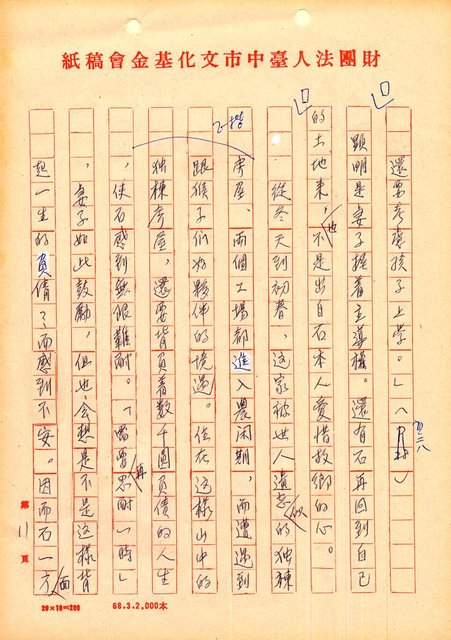 財團法人臺中市文化基金會稿紙
還要考慮孩子上學。」(P.38)
顯明是妻子握着主導權。還有石再回到自己
的土地来,也不是出自石本人愛惜故鄉的心。
從冬天到初春,這家被世人遺忘似的独棟
房屋、兩個工場都進入農闲期,而遭遇到
跟猴子们為夥伴的境遇。住在這樣山中的
独棟房屋,還要背負着数千圓負債的人生
,使石感到無限難耐。「嗯嗯再忍耐一時」
,妻子如此鼓勵,但也会想是不是這樣背
起一生的負債了、而感到不安。因而石一方面
第11頁
20×10=200
68.3.2,000本